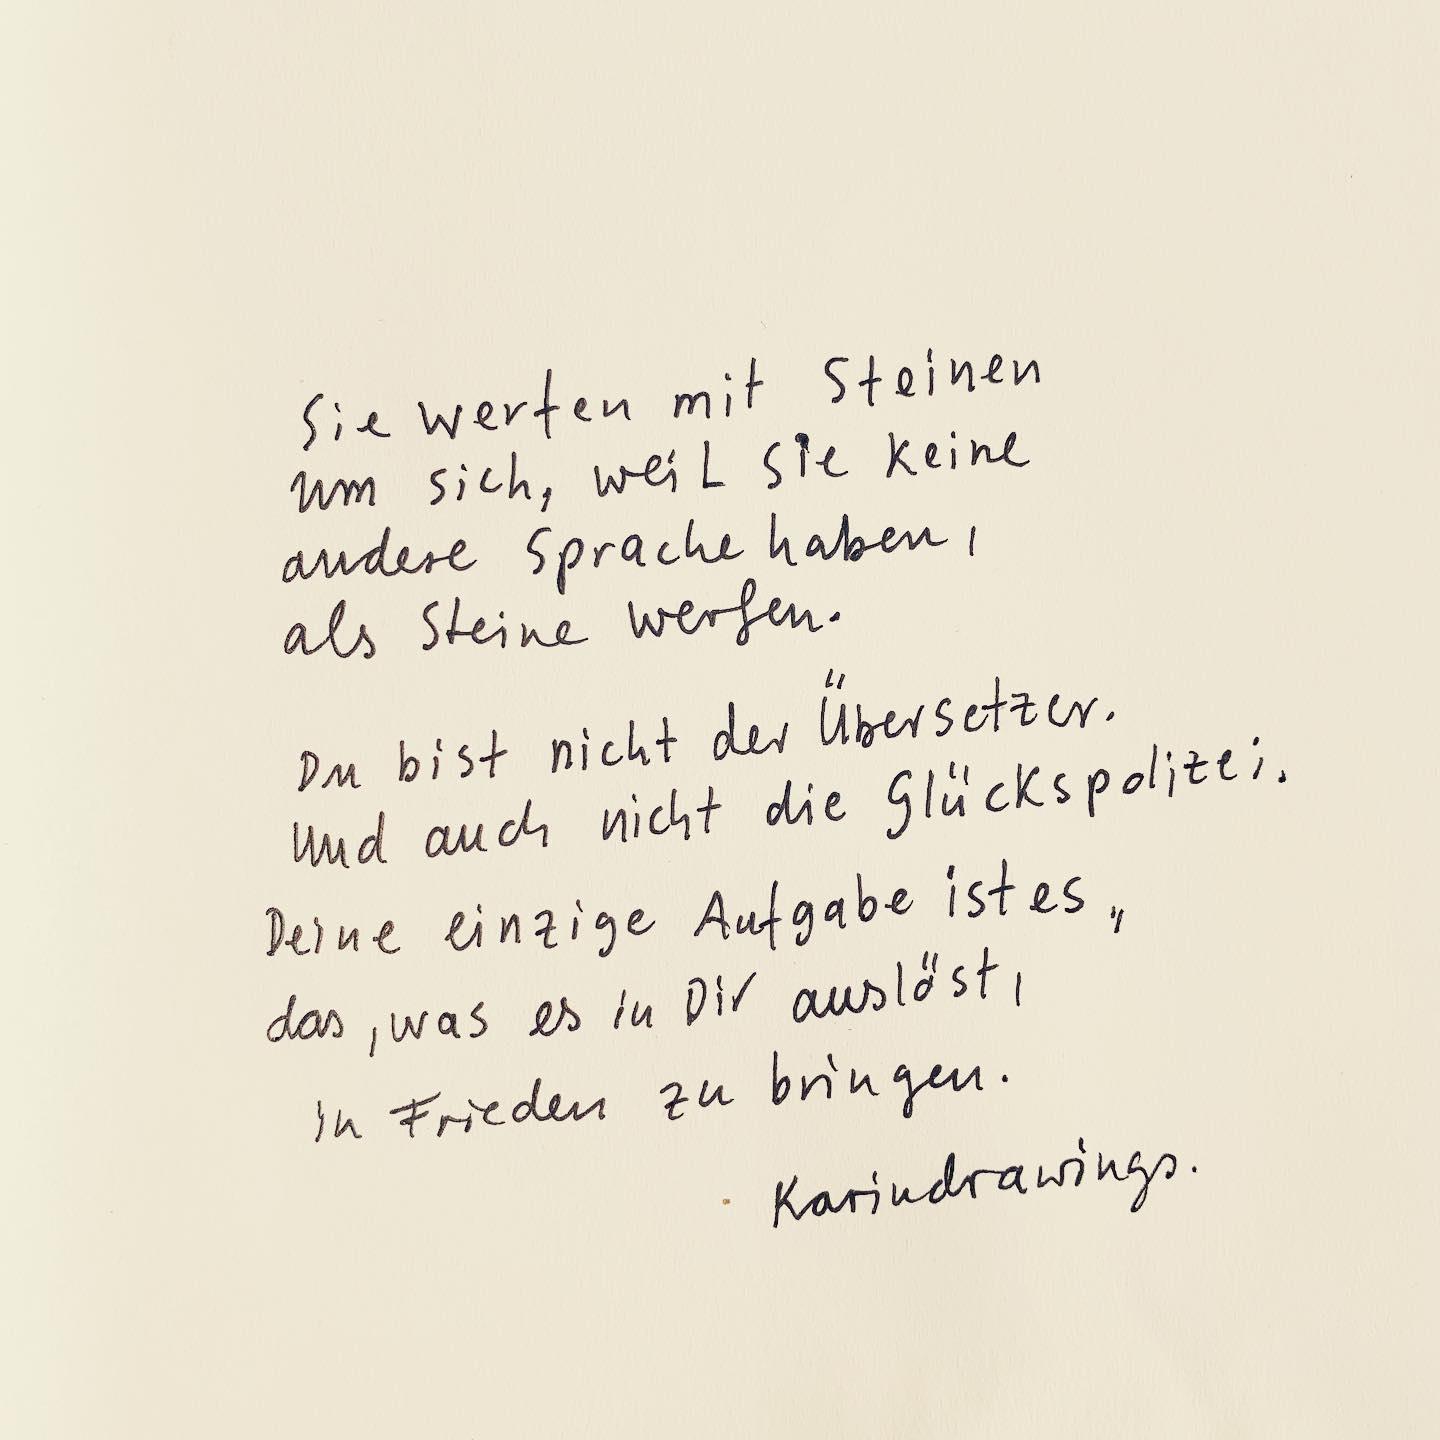 Sie werfen mit Steinen
um sich, weil sie keine
andere Sprache haben,
als Steine werfen.
Du bist nicht der Übersetzer.
Und auch nicht die Glückspolizei.
Deine einzige Aufgabe ist es „
das, was es in Dir auslöst,
in Frieden zu bringen.
Karindrawings.